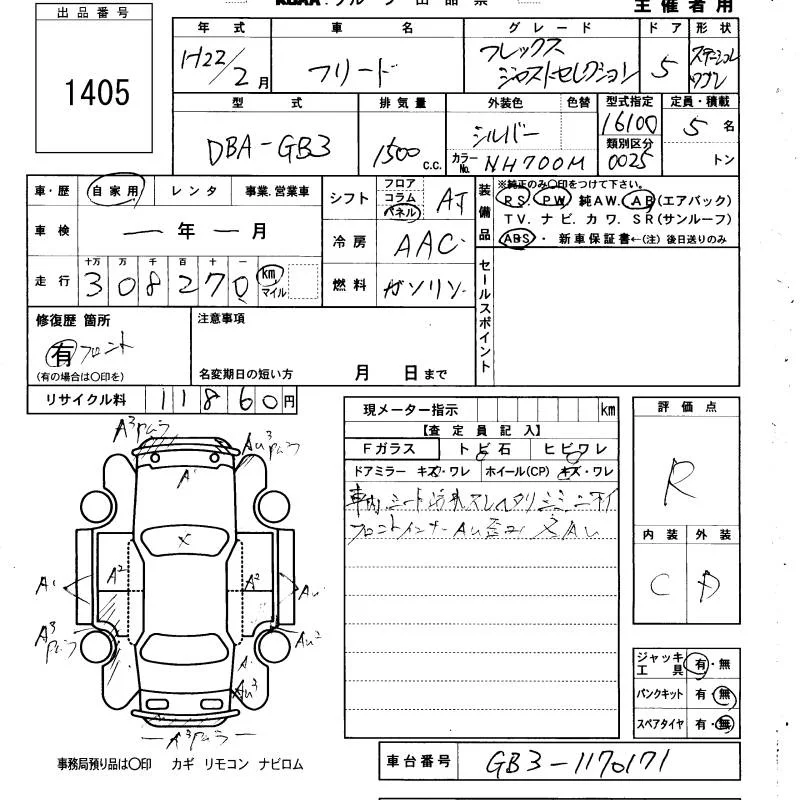 出品番号
1405
主催者用
年式 車名 グレード ドア 形状
H22/2月 フリード フレックス ジャストセレクション 5 ステーションワゴン
型式 排気量 外装色 色替 型式指定 定員・積載
DBA-GB3 1500 c.c. シルバー 16100 5名
カラーNo. NH700M 類別区分 0025 トン
車・歴 自家用 レンタ 事業.営業車
シフト フロア コラム パネル AT
装備品 ※純正のみ〇印をつけて下さい。
PS. PW 純AW. AB(エアバック)
TV. ナビ. カワ. SR(サンルーフ)
ABS・ 新車保証書←(注) 後日送りのみ
車検 ー年ー月
冷房 AAC
走行 十万 万 千 百 十 一
308270 km マイル
燃料 ガソリン
セールスポイント
修復歴 箇所
有 フロント
(有の場合は〇印を)
注意事項
名変期日の短い方 月 日まで
リサイクル料 11860円
現メーター指示 km
【査定員記入】
Fガラス トビ石 ヒビワレ
ドアミラー キズ・ワレ ホイール(CP) キズ・ワレ
車内、シート汚れ
フロントインナーAu
評価点
R
内装 外装
C D
A3 Au3
A1
X
A1 A2 A2 Au
A3 Au2
A1
Au3
A3
ジャッキ工具 有・無
パンクキット 有・無
スペアタイヤ 有・無
事務局預り品は〇印 カギ リモコン ナビロム
車台番号 GB3-1170171